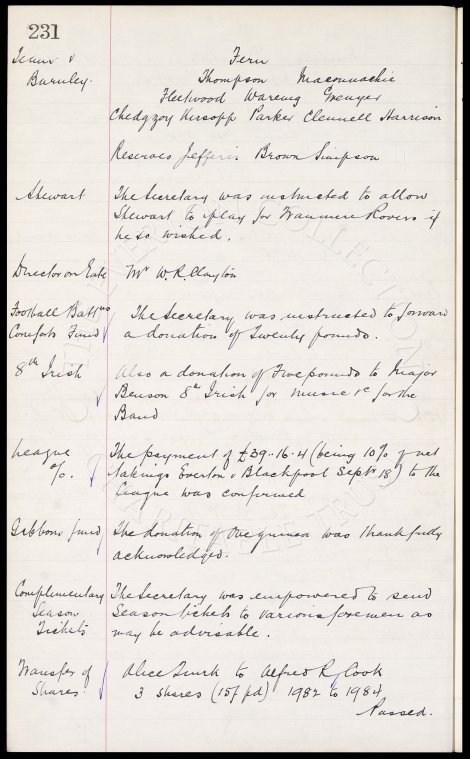 231
Team v Fern
Burnley. Thompson Maconnachie
Fleetwood Wareing Grenyer
Chedgzoy Kirsopp Parker Clennell Harrison
Reserves Jefferis Brown Simpson
Stewart The Secretary was instructed to allow
Stewart to play for Tranmere Rovers if
he so wished.
Director on Gate Mr W. R. Clayton
Football Battns The Secretary was instructed to forward
Comforts Fund a donation of Twenty pounds.
8th Irish Also a donation of Five pounds to Major
Benson 8th Irish for music &c for the
Band
League The payment of £39..16.4 (being 10% of net
%. takings Everton v Blackpool Sept 18) to the
League was confirmed
Gibbons fund The donation of One guinea was thankfully
acknowledged.
Complimentary The Secretary was empowered to send
Season Season tickets to various foremen as
Tickets may be advisable.
Transfer of Alice Turk to Alfred R. Cook
Shares. 3 shares (15/ pd) 1982 to 1984
Passed.